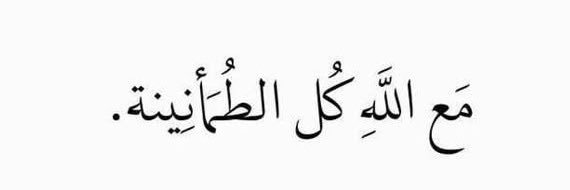 مَع اللَّهِ كُل الطُمَأنِينة.